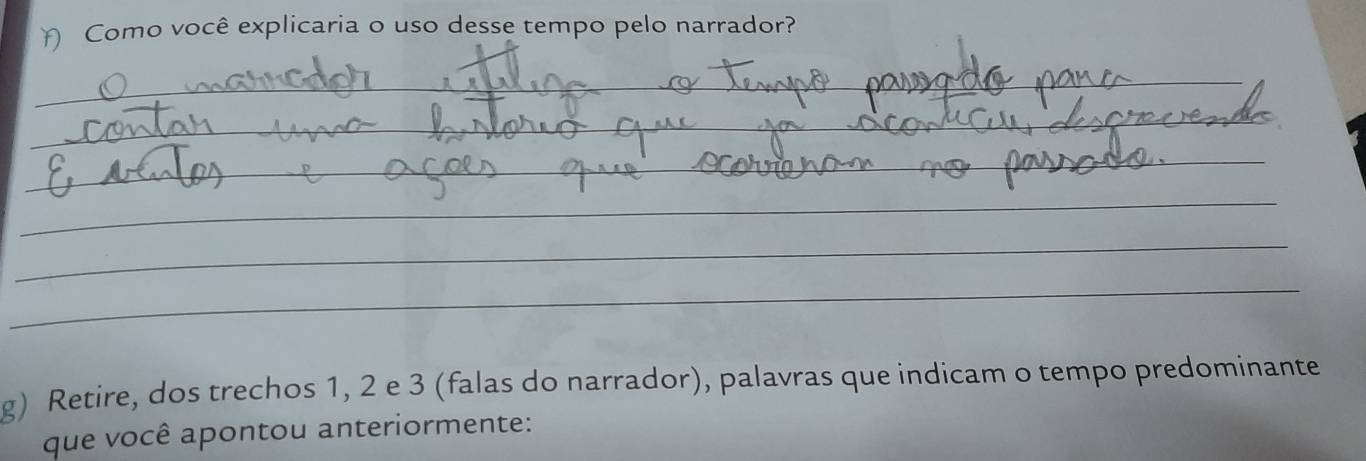 f) Como você explicaria o uso desse tempo pelo narrador?
O narrador utiliza o tempo passado para
contar uma historia que ja aconteceu, descrevendo
Eventos e ações que ocorreram no passado.
g) Retire, dos trechos 1, 2 e 3 (falas do narrador), palavras que indicam o tempo predominante
que você apontou anteriormente: